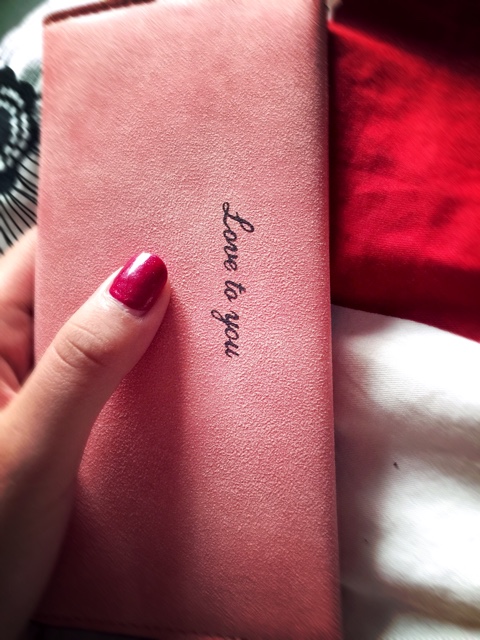 Love to you